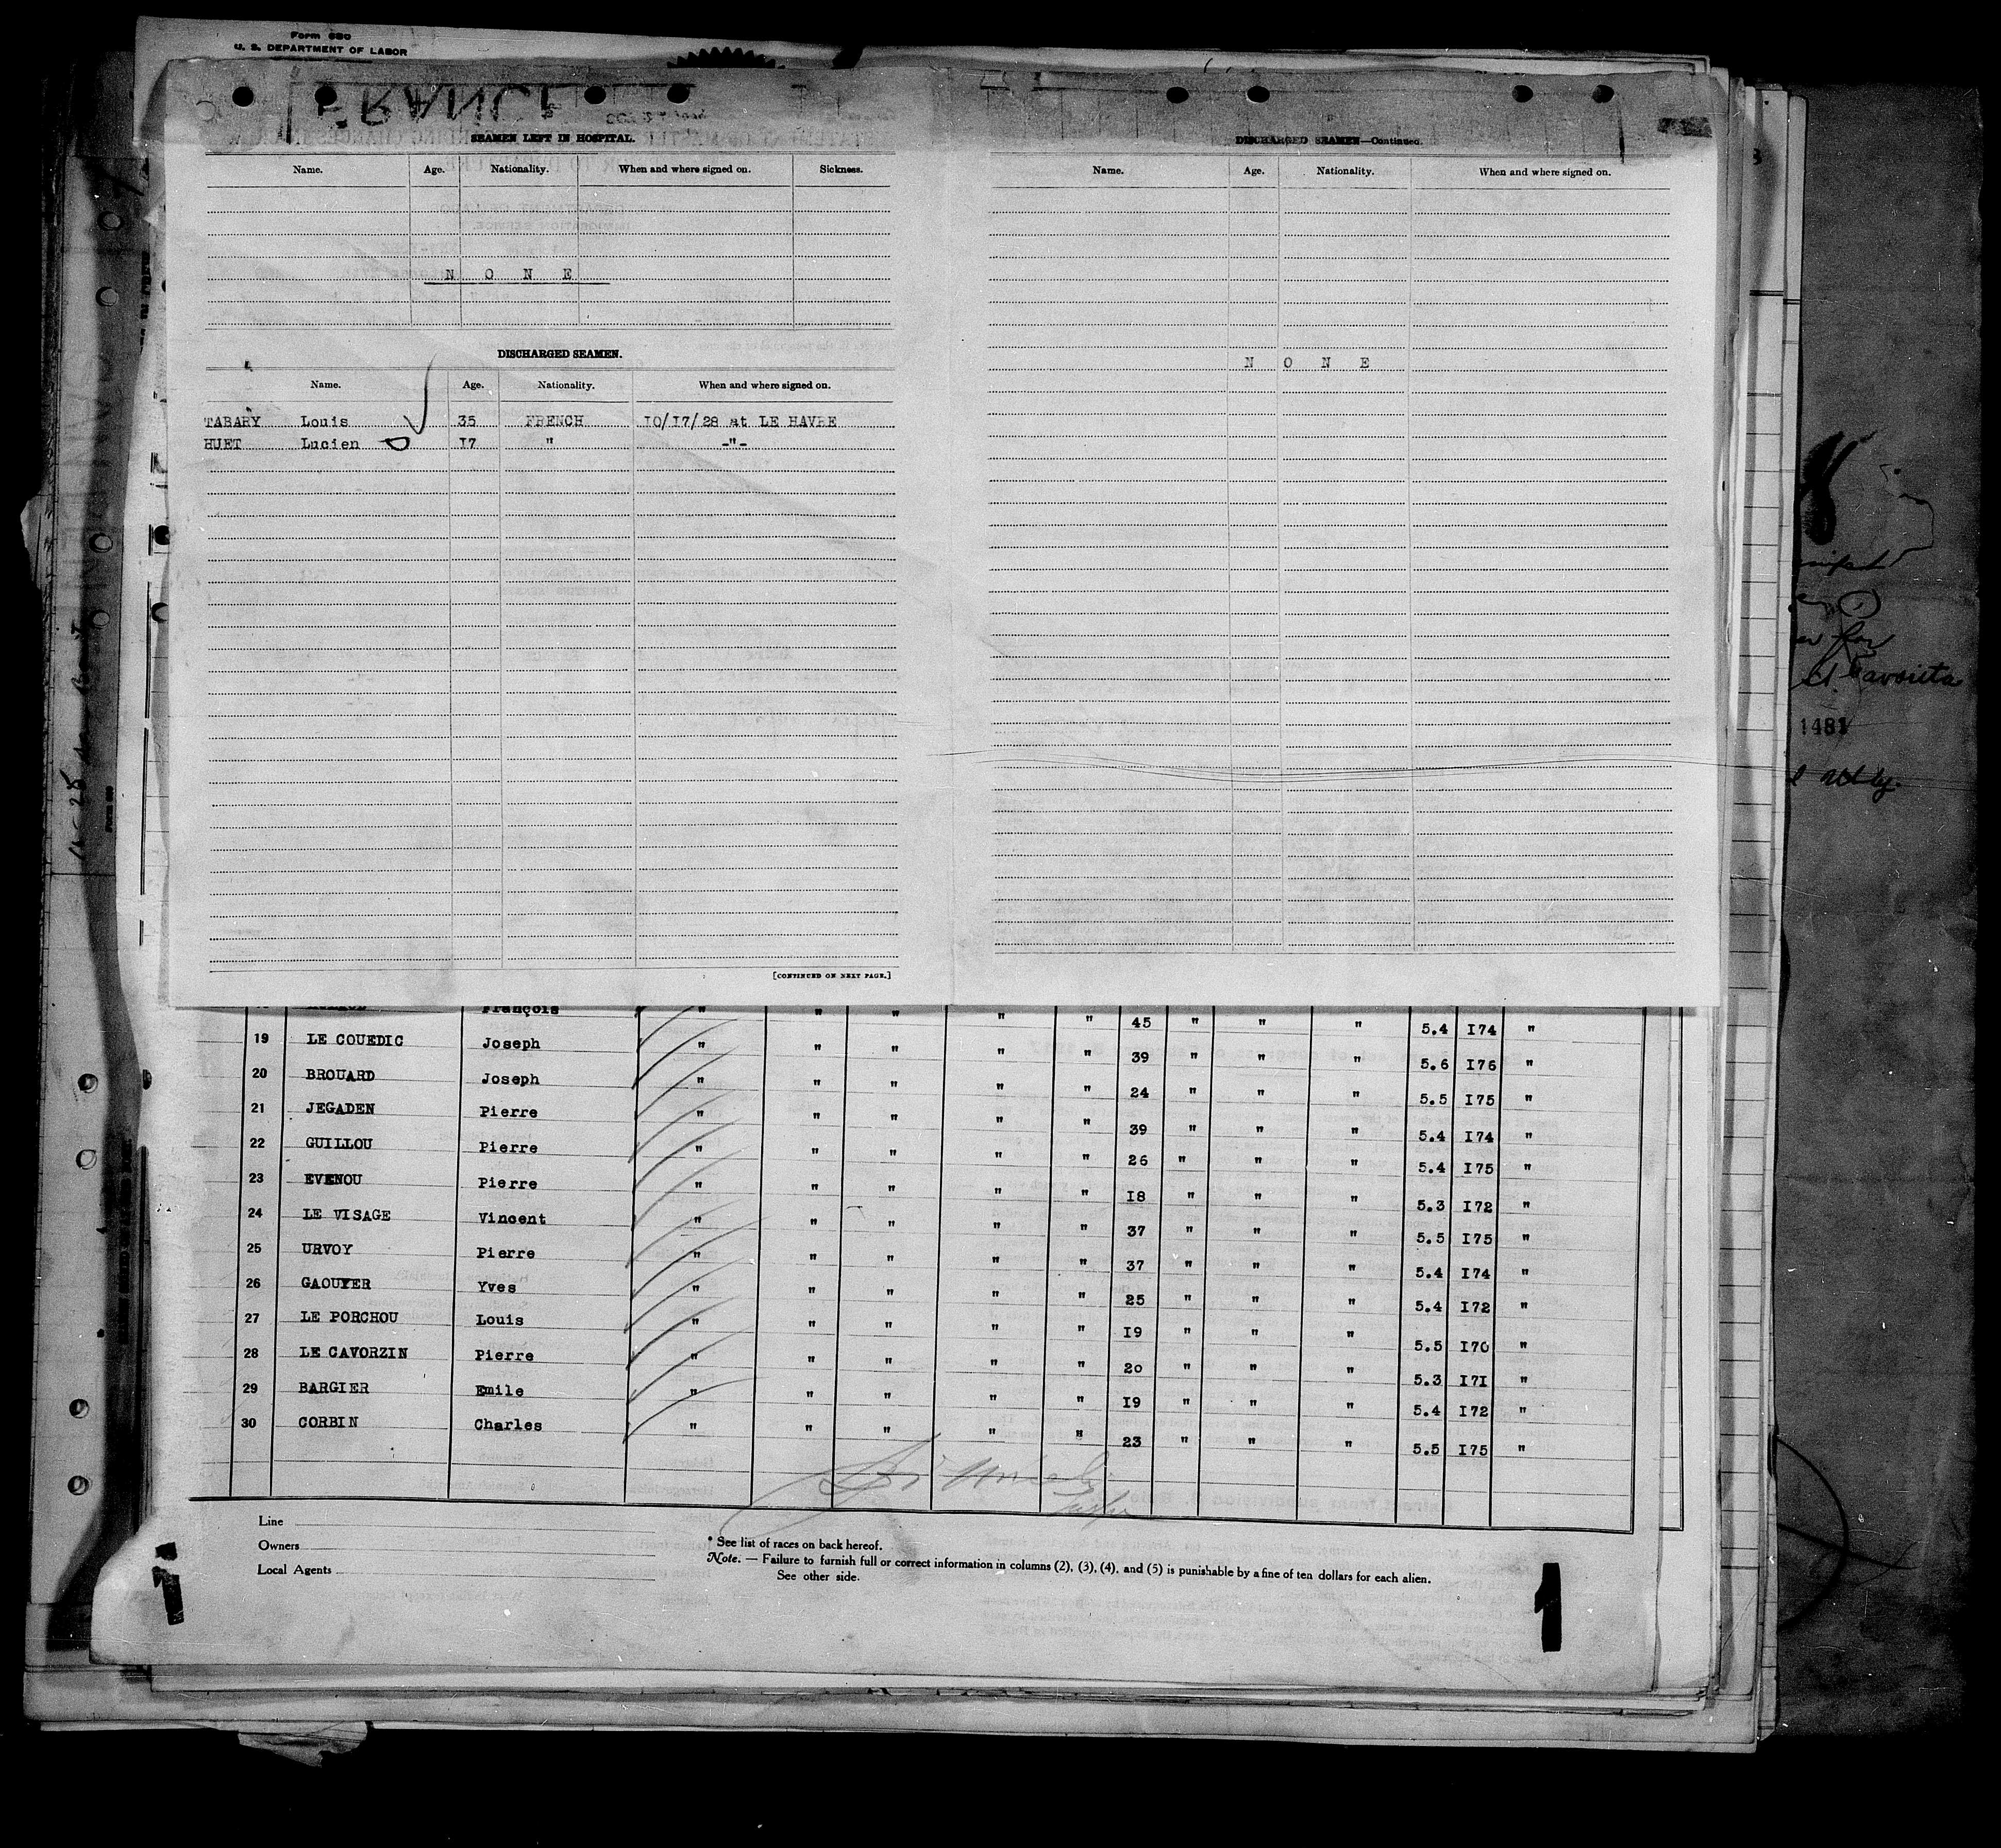 Form 680
U. S. DEPARTMENT OF LABOR
FRANCE
SEAMEN LEFT IN HOSPITAL.
Name. Age. Nationality. When and where signed on. Sickness.
N O N E
DISCHARGED SEAMEN.
Name. Age. Nationality. When and where signed on.
TABARY Louis 35 FRENCH 10/17/28 at LE HAVRE
HUET Lucien 17 " -"-
[CONTINUED ON NEXT PAGE.]
DISCHARGED SEAMEN—Continued.
Name. Age. Nationality. When and where signed on.
N O N E
François " " " " " 45 " " " 5.4 174 "
19 LE COUEDIC Joseph " " " " " 39 " " " 5.6 176 "
20 BROUARD Joseph " " " " " 24 " " " 5.5 175 "
21 JEGADEN Pierre " " " " " 39 " " " 5.4 174 "
22 GUILLOU Pierre " " " " " 26 " " " 5.4 175 "
23 EVENOU Pierre " " " " " 18 " " " 5.3 172 "
24 LE VISAGE Vincent " " " " " 37 " " " 5.5 175 "
25 URVOY Pierre " " " " " 37 " " " 5.4 174 "
26 GAOUYER Yves " " " " " 25 " " " 5.4 172 "
27 LE PORCHOU Louis " " " " " 19 " " " 5.5 170 "
28 LE CAVORZIN Pierre " " " " " 20 " " " 5.3 171 "
29 BARGIER Emile " " " " " 19 " " " 5.4 172 "
30 CORBIN Charles " " " " " 23 " " " 5.5 175 "
Line
Owners
Local Agents
* See list of races on back hereof.
Note. — Failure to furnish full or correct information in columns (2), (3), (4), and (5) is punishable by a fine of ten dollars for each alien.
See other side.
1
1
for
1481